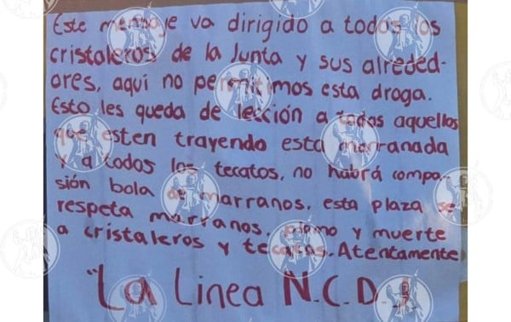 Este mensaje va dirigido a todos los
cristaleros de la Junta y sus alreded-
ores, aquí no permitimos esta droga.
Esto les queda de lección a todos aquellos
que esten trayendo esta marranada
y a todos los tecatos, no habrá compa-
sión bola de marranos, esta plaza se
respeta marranos, plomo y muerte
a cristaleros y tecatos. Atentamente
"La Linea N.C.D.